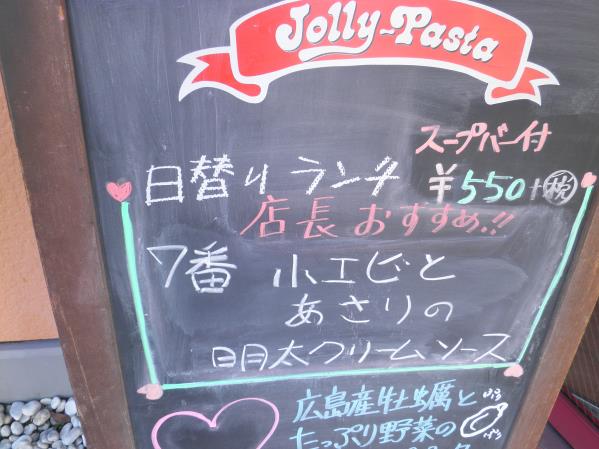 Jolly-Pasta
スープバー付
日替りランチ ¥550+税
店長おすすめ!!
7番 小エビと
あさりの
明太クリームソース
広島産牡蠣と
たっぷり野菜の